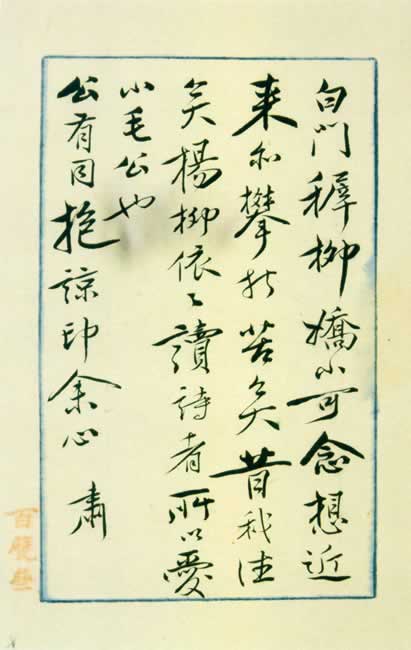 白門稺柳嬌小可念想近
來亦攀折苦矣昔我往
矣楊柳依〻讀詩者所以愛
小毛公也
公有同抱諒印余心 肅
百覽無